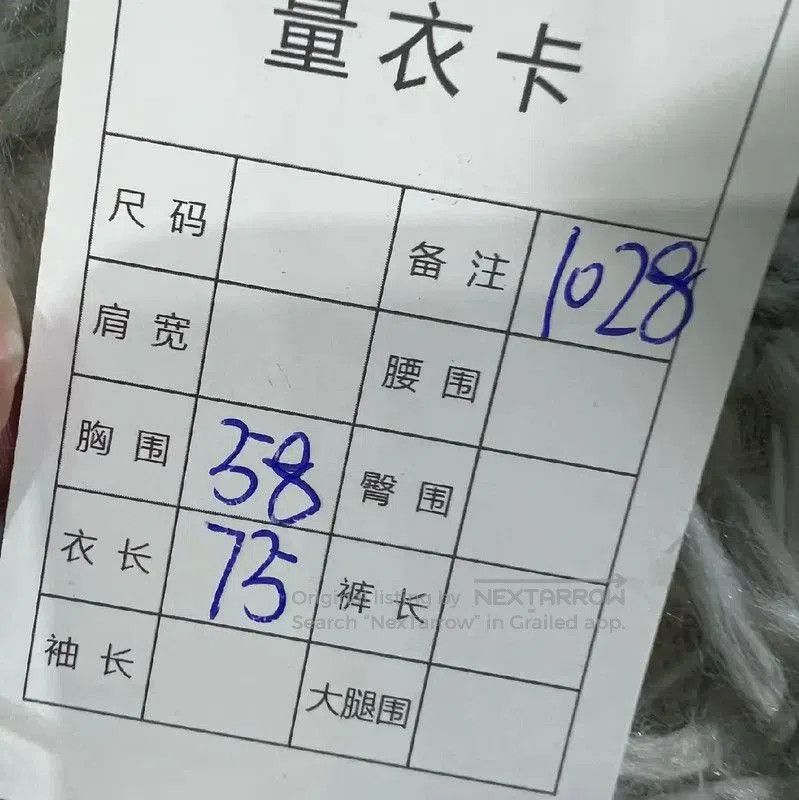 量衣卡
尺码 备注 1028
肩宽 腰围
胸围 58 臀围
衣长 75 裤长
袖长 大腿围
Original listing by NEXTARROW
Search "NexTarrow" in Grailed app.